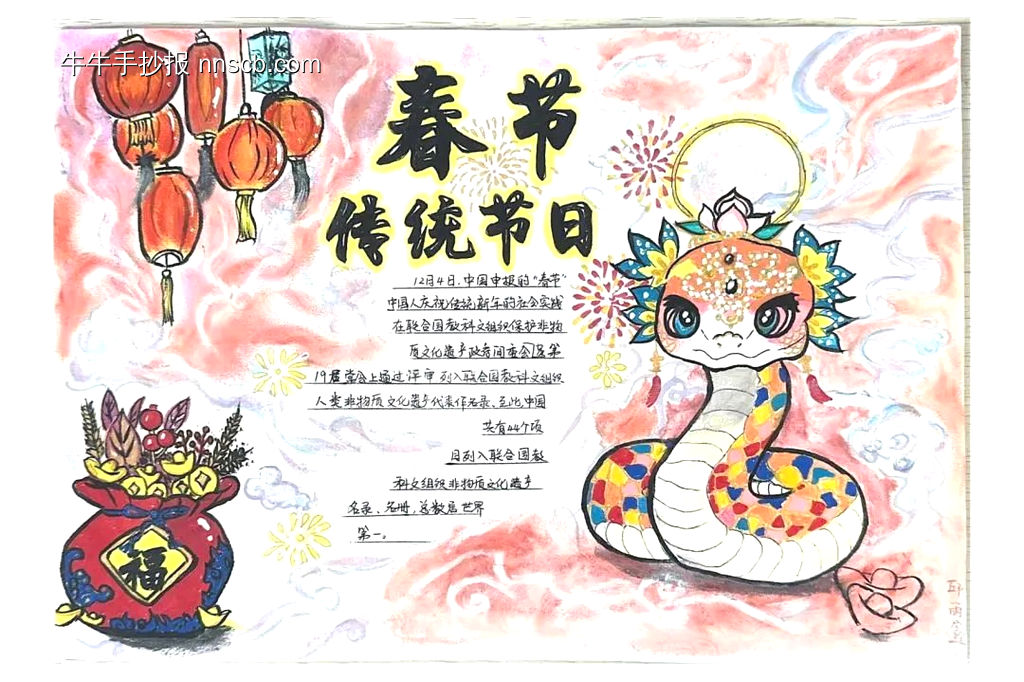 牛牛手抄报 nnscb.com
春节
传统节日
12月4日,中国申报的“春节”
中国人庆祝传统新年的社会实践
在联合国教科文组织保护非物
质文化遗产政府间委会因第
19届常会上通过评审列入联合国教科文组织
人类非物质文化遗产代表作名录、至此中国
共有44个项
目列入联合国教
科文组织非物质文化遗产
名录、名册,总数居世界
第一。
福